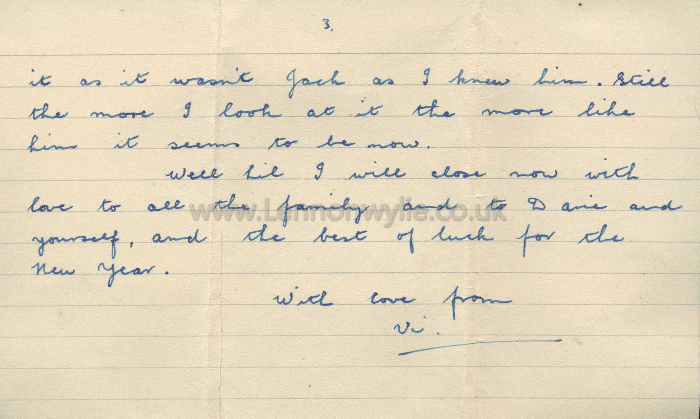 3.
it as it wasn't Jack as I knew him. Still
the more I look at it the more like
him it seems to be now.
Well Lil I will close now with
love to all the family and to Davie and
www.Lennonwylie.co.uk
yourself, and the best of luck for the
New Year.
With love from
Vi.